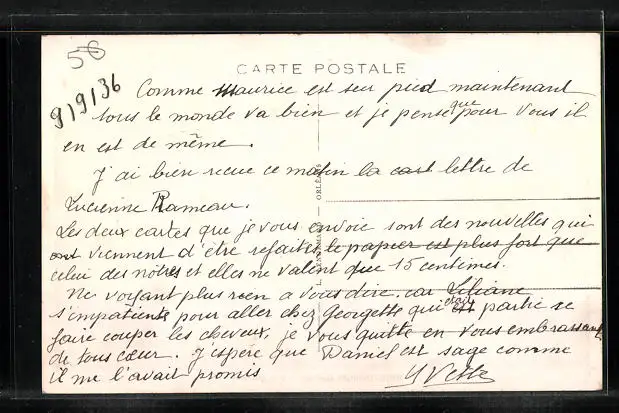 56
CARTE POSTALE
9/9/36
Comme Maurice est sur pied maintenant
tous le monde va bien et je pense que pour vous il
en est de même.
J'ai bien recue ce matin la cart lettre de
Lucienne Rameau.
Les deux cartes que je vous envoie sont des nouvelles qui
ont viennent d'être refaites le papier est plus fort que
celui des notres et elles ne valent que 15 centimes.
Ne voyant plus rien a vous dire, car Liliane
s'impatiente pour aller chez Georgette qui était est partie se
faire couper les cheveux, je vous quitte en vous embrassant
de tous cœur. J'espère que Daniel est sage comme
il me l'avait promis
Yvette
ORLÉANS